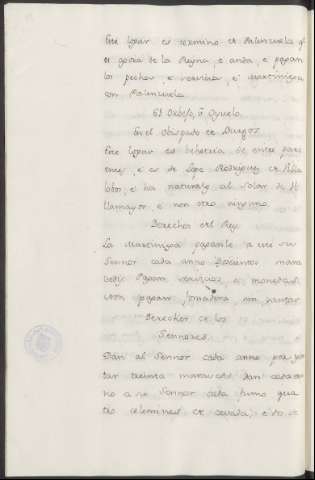 Este logar es termino de Palenzuela q̃
es agora de la Reyna, e anda, e pagan
los pechos, e servicios, e martiniega
con Palenzuela.
El Oxuelo, ó Oyuelo.
En el Obispado de Burgos
Este logar es behetria de entre parien
tes, e es de Lope Rodriguez de Villa
lobos, e ha naturales al solar de Vi
llamayor e non otro ninguno.
Derechos del Rey
La Martiniega paganla a este su
Señor cada anno Doscientos mara
vedis. Pagan servicios e monedas
non pagan fonsadera, nin yantar
Derechos de los
Sennores.
Dan al Sennor cada anno por yan
tar treinta maravedis. Dan cada an
no a su Sennor cada fumo qua
tro celemines de cevada, e otro